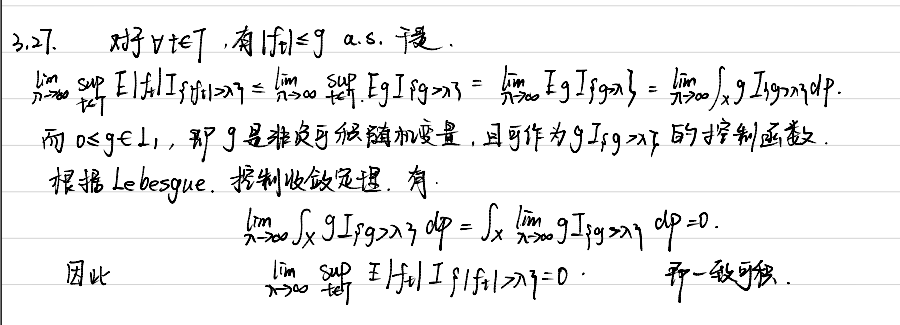 3.27. 对于∀t∈T,有|f_t|≤g a.s. 于是.
lim_{λ→∞} sup_{t∈T} E|f_t|I_{{|f_t|>λ}} ≤ lim_{λ→∞} sup_{t∈T} E g I_{{g>λ}} = lim_{λ→∞} E g I_{{g>λ}} = lim_{λ→∞} ∫_X g I_{{g>λ}} dP.
而 0≤g∈L_1,即 g 是非负可积随机变量,且可作为 g I_{{g>λ}} 的控制函数.
根据 Lebesgue. 控制收敛定理. 有.
lim_{λ→∞} ∫_X g I_{{g>λ}} dP = ∫_X lim_{λ→∞} g I_{{g>λ}} dP = 0.
因此 lim_{λ→∞} sup_{t∈T} E|f_t| I_{{|f_t|>λ}} = 0. 即一致可积.